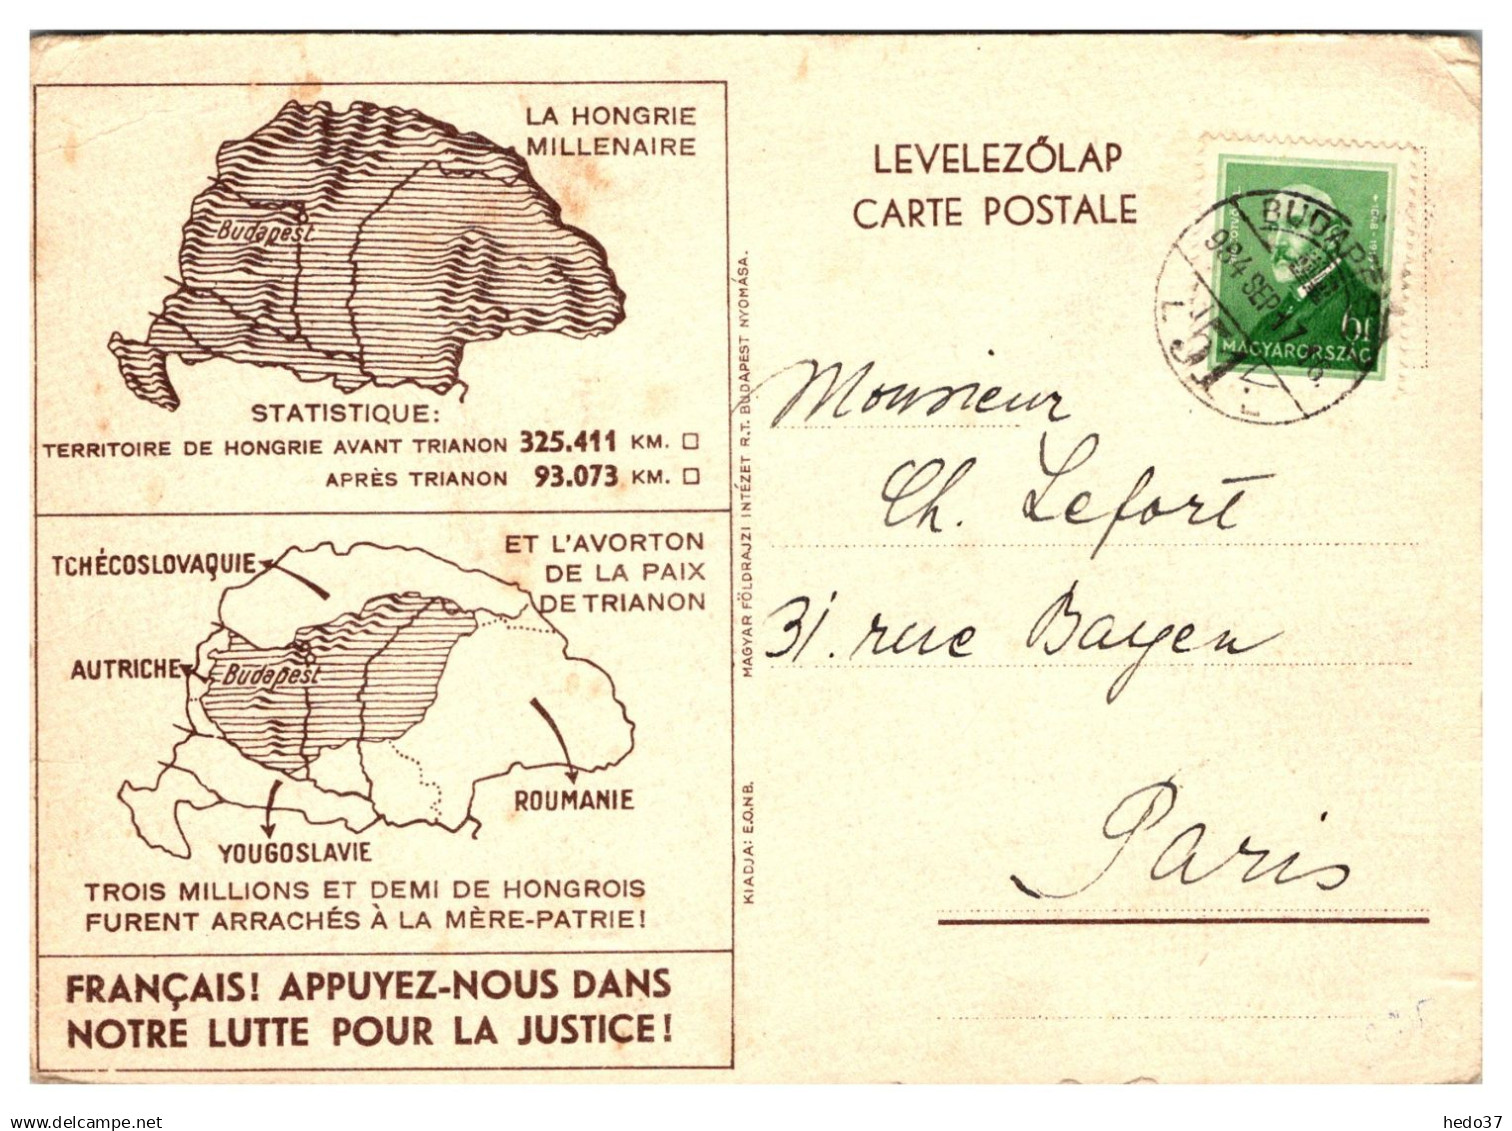 LA HONGRIE
MILLENAIRE
Budapest
STATISTIQUE:
TERRITOIRE DE HONGRIE AVANT TRIANON 325.411 KM. □
APRÈS TRIANON 93.073 KM. □
ET L'AVORTON
DE LA PAIX
DE TRIANON
TCHÉCOSLOVAQUIE
AUTRICHE
Budapest
ROUMANIE
YOUGOSLAVIE
TROIS MILLIONS ET DEMI DE HONGROIS
FURENT ARRACHÉS À LA MÈRE-PATRIE!
FRANÇAIS! APPUYEZ-NOUS DANS
NOTRE LUTTE POUR LA JUSTICE!
KIADJA: E.O.N.B.
MAGYAR FÖLDRAJZI INTÉZET R.T. BUDAPEST NYOMÁSA.
LEVELEZŐLAP
CARTE POSTALE
BUDAPEST
934 SEP 17
6f
MAGYARORSZÁG
Monsieur
Ch. Lefort
31. rue Bayen
Paris
delcampe.net
hedo37